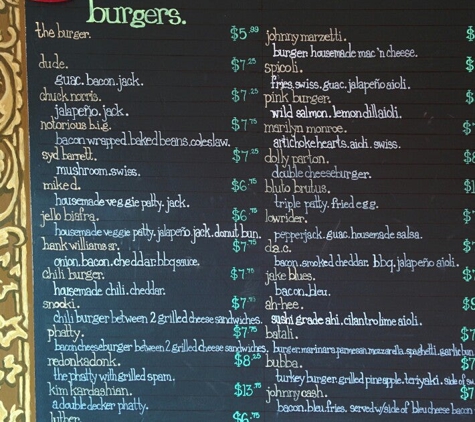 burgers.
the burger. $5.99
dude. $7.25
guac. bacon. jack.
chuck norris. $7.25
jalapeño. jack.
notorious b.i.g. $7.75
bacon wrapped. baked beans. coleslaw.
syd barrett. $7.25
mushroom. swiss.
mike d. $6.75
housemade veggie patty. jack.
jello biafra. $6.75
housemade veggie patty. jalapeño. jack. donut bun.
hank williams sr. $7.75
onion. bacon. cheddar. bbq sauce.
chili burger. $7.75
housemade chili. cheddar.
snooki. $7.75
chili burger between 2 grilled cheese sandwiches.
phatty. $7.75
bacon cheeseburger between 2 grilled cheese sandwiches.
redonkadonk. $8.25
the phatty with grilled spam.
kim kardashian. $13.75
a double decker phatty.
luther. $6.75
johnny marzetti. $
burger. housemade mac 'n cheese.
spicoli. $
fries. swiss. guac. jalapeño aioli.
pink burger. $
wild salmon. lemon dill aioli.
marilyn monroe. $
artichoke hearts. aioli. swiss.
dolly parton. $
double cheeseburger.
bluto brutus. $
triple patty. fried egg.
lowrider. $
pepperjack. guac. housemade salsa.
d.a.c. $
bacon. smoked cheddar. bbq. jalapeño aioli.
jake blues. $
bacon. bleu.
ah-hee. $
sushi grade ahi. cilantro lime aioli.
batali. $7
burger. marinara. parmesan. mozzarella. spaghetti. garlic bun
bubba. $7
turkey burger. grilled pineapple. teriyaki. side of sw
johnny cash. $7
bacon. bleu. fries. served w/ side of bleu cheese bacon